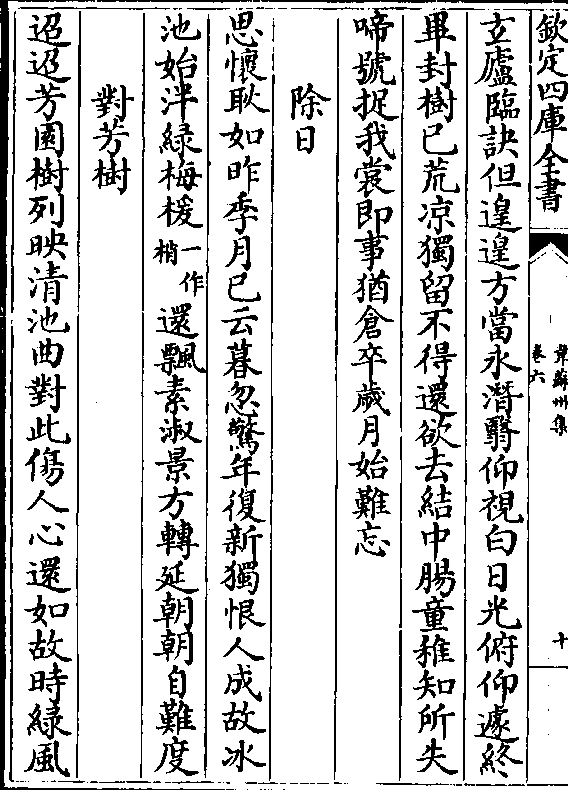 欽定四庫全書
韋蘇州集
卷六
十
立廬臨訣但遑遑方當永潛翳仰視白日光俯仰遽終
畢封樹已荒凉獨留不得還欲去結中腸童稚知所失
啼號捉我裳即事猶倉卒歲月始難忘
除日
思懷耿如昨季月已云暮忽驚年復新獨恨人成故冰
池始泮綠梅楥一作梢還飄素淑景方轉延朝朝自難度
對芳樹
迢迢芳園樹列映清池曲對此傷人心還如故時綠風